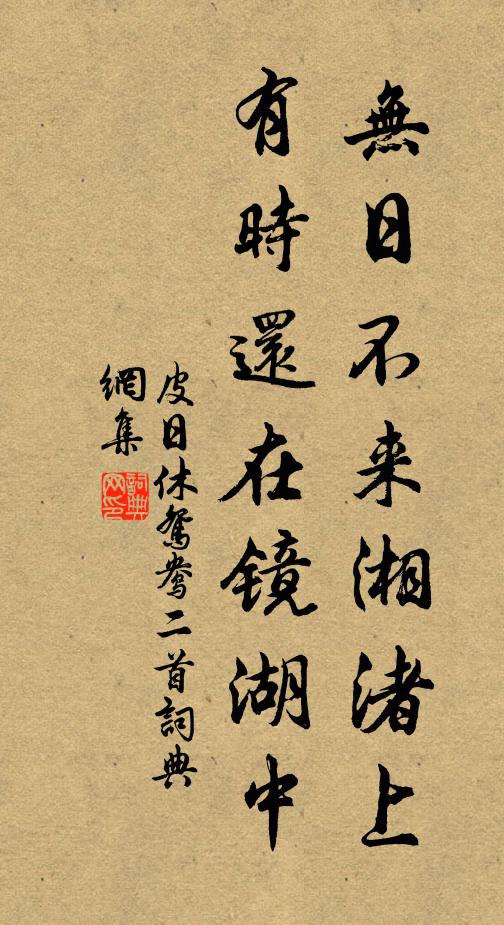 無日不来湘渚上
有時還在镜湖中
皮日休鴛鴦二首詞典
網集
詞典
网印